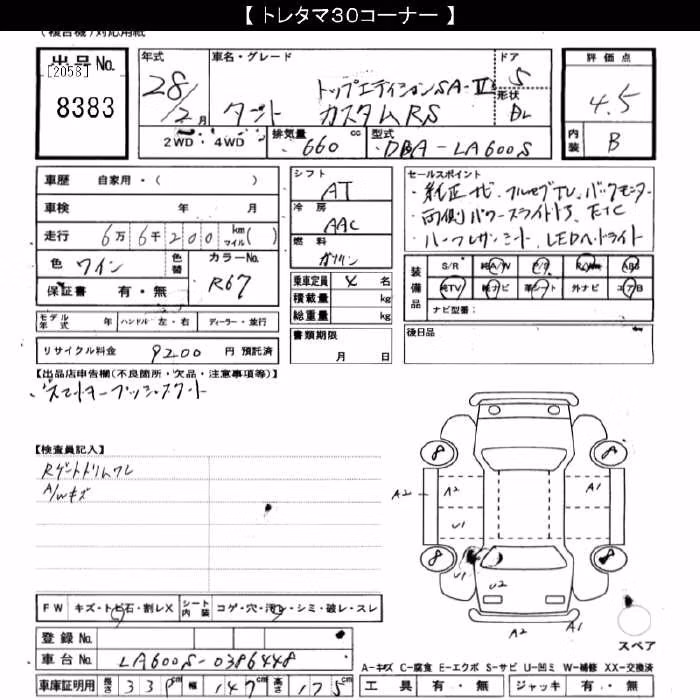 【 トレタマ30コーナー 】
(複合機)対応用紙
出品No.
[2058]
8383
年式
28/2月
車名・グレード
タント
トップエディションSA-Ⅱ
カスタムRS
ドア
5
形状
評価点
4.5
内装
B
2WD ・ 4WD
排気量
660 cc
型式
DBA-LA600S
車歴 自家用・( )
車検 年 月
走行 6万 6千 200 km マイル( )
色 ワイン
色替
カラーNo.
R67
保証書 有・無
モデル年式 年 ハンドル 左・右 ディーラー・並行
リサイクル料金 9200 円 預託済
シフト
AT
冷房
AAC
燃料
ガソリン
乗車定員 4 名
積載量 kg
総重量 kg
書類期限
月 日
セールスポイント
・純正ナビ、フルセグTV、バックモニター
・両側パワースライドドア、ETC
・ハーフレザーシート、LEDヘッドライト
装備品
S/R 純A/W P/S P/W ABS
純TV 純ナビ 革シート 外ナビ エアB
ナビ型番:
後日品
【出品店申告欄(不良箇所・欠品・注意事項等)】
・スマートキープッシュスタート
【検査員記入】
Rゲートトリムワレ
A/Wキズ
8
A
A2
A2
A1
U1
8
8
U1
U2
A2
A1
スペア
FW キズ・トビ石・割レX
シート内装 コゲ・穴・汚レ・シミ・破レ・スレ
登録No.
車台No. LA600S-0386448
車庫証明用 長さ 339cm 幅 147cm 高さ 175cm
A-キズ C-腐食 E-エクボ S-サビ U-凹ミ W-補修 XX-交換済
工具 有・無 ジャッキ 有・無